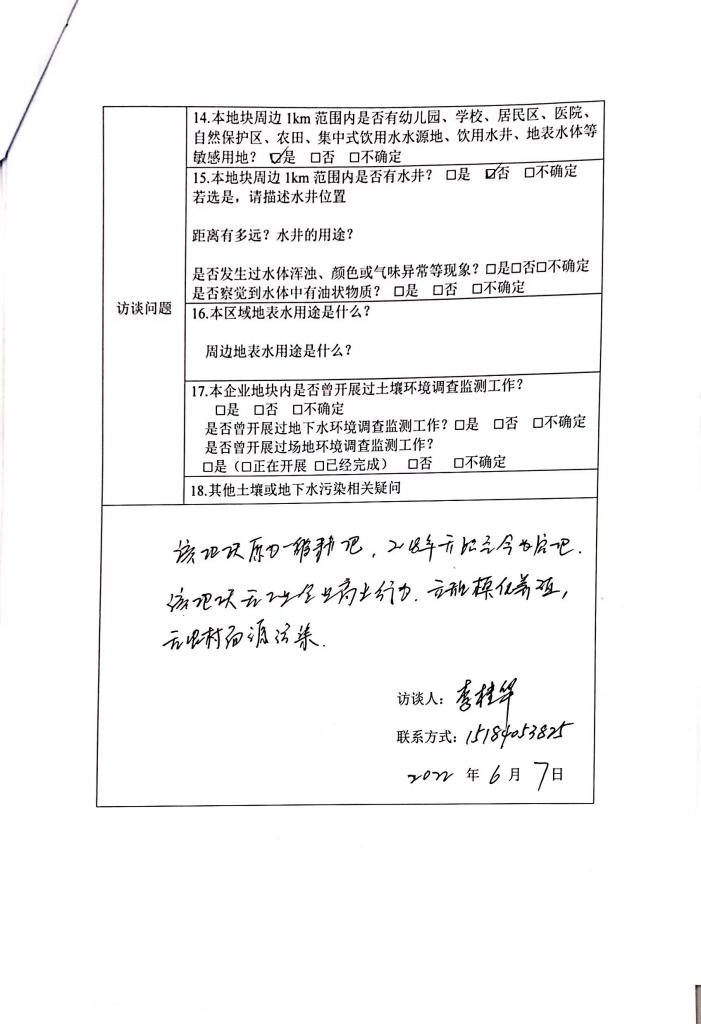 14.本地块周边 1km 范围内是否有幼儿园、学校、居民区、医院、
自然保护区、农田、集中式饮用水水源地、饮用水井、地表水体等
敏感用地？ ☑是 □否 □不确定
15.本地块周边 1km 范围内是否有水井？ □是 ☑否 □不确定
若选是，请描述水井位置
距离有多远？水井的用途？
是否发生过水体浑浊、颜色或气味异常等现象？□是□否□不确定
是否察觉到水体中有油状物质？ □是 □否 □不确定
访谈问题
16.本区域地表水用途是什么？
周边地表水用途是什么？
17.本企业地块内是否曾开展过土壤环境调查监测工作？
□是 □否 □不确定
是否曾开展过地下水环境调查监测工作？□是 □否 □不确定
是否曾开展过场地环境调查监测工作？
□是（□正在开展 □已经完成） □否 □不确定
18.其他土壤或地下水污染相关疑问
该地块原为
该地块无工业企业 规模化养殖，
无农村面源污染.
访谈人：李桂华
联系方式：15184053825
2022 年 6 月 7 日